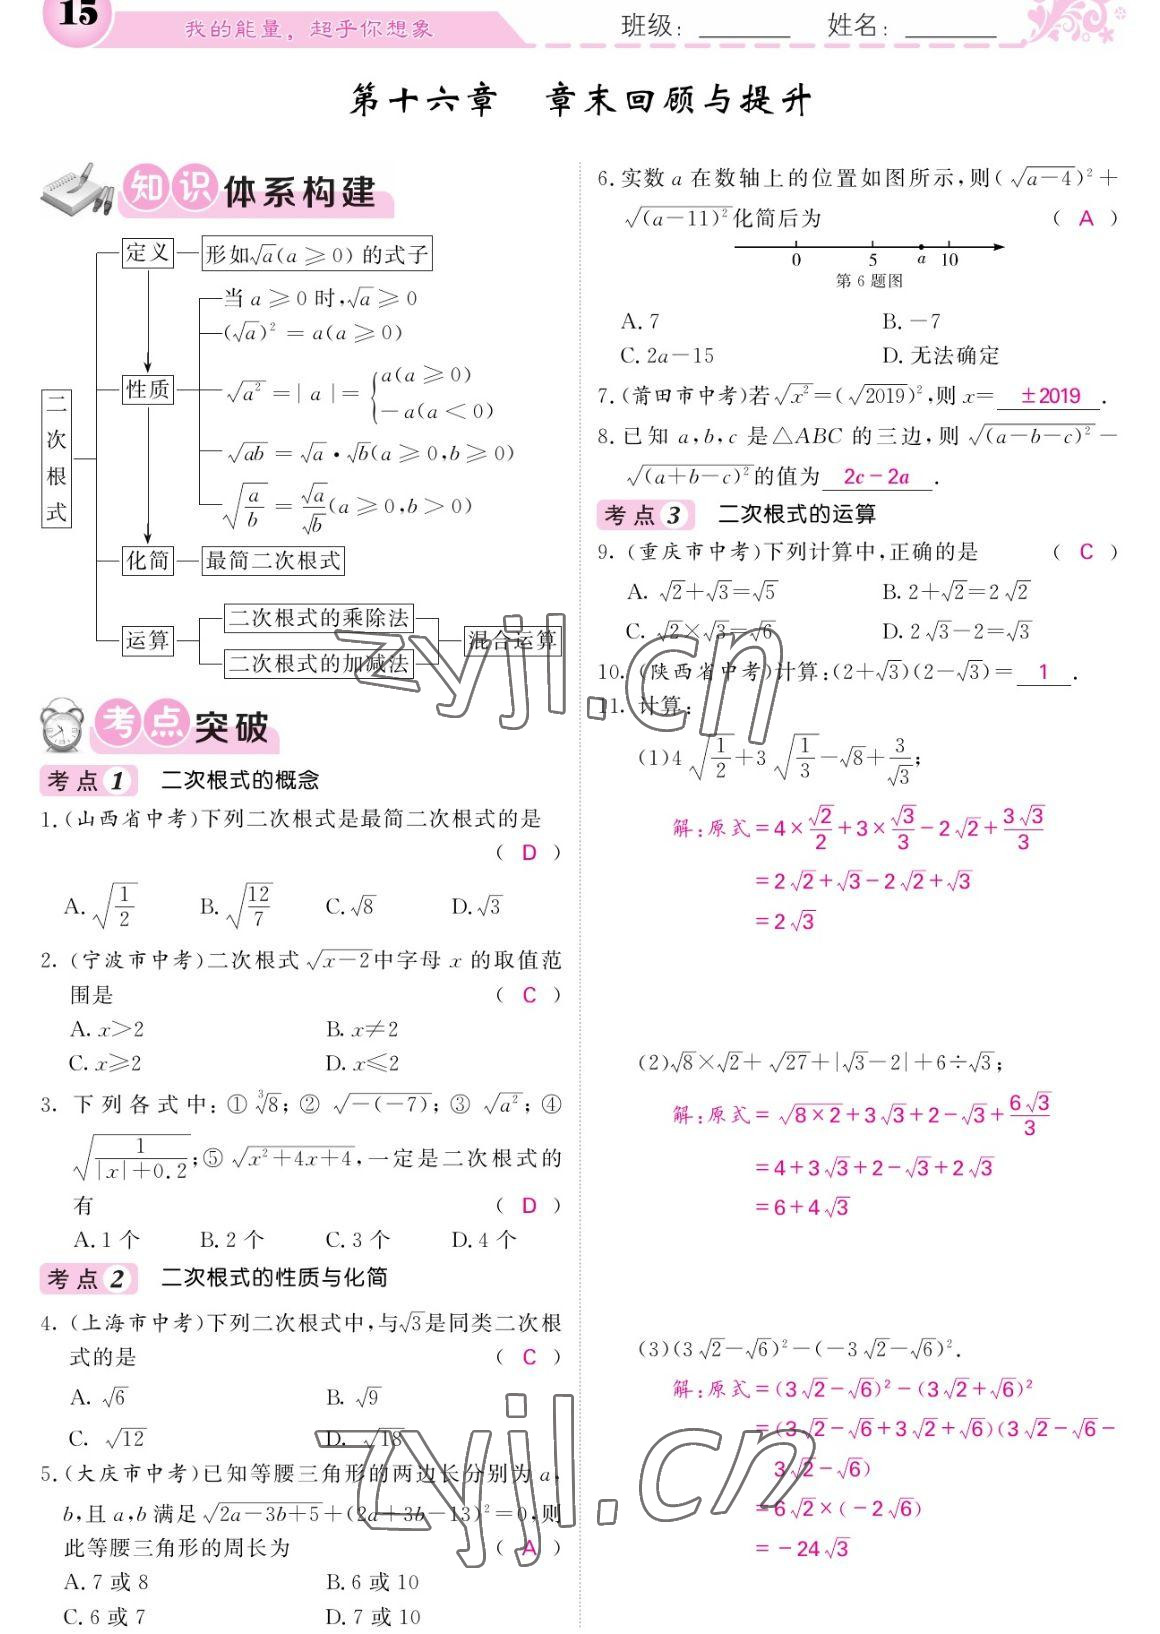 15
我的能量，超乎你想象
班级：________ 姓名：________
第十六章 章末回顾与提升
知识体系构建
二次根式
定义 形如√a(a≥0)的式子
性质
当a≥0时,√a≥0
(√a)²=a(a≥0)
√a²=|a|={a(a≥0) −a(a<0)
√ab=√a·√b(a≥0,b≥0)
√(a/b)=√a/√b(a≥0,b>0)
化简 最简二次根式
运算
二次根式的乘除法
二次根式的加减法
混合运算
考点突破
考点1 二次根式的概念
1.(山西省中考)下列二次根式是最简二次根式的是
( D )
A.√(1/2) B.√(12/7) C.√8 D.√3
2.(宁波市中考)二次根式√(x−2)中字母x的取值范
围是 ( C )
A.x>2 B.x≠2
C.x≥2 D.x≤2
3.下列各式中:①∛8;②√(−(−7));③√a²;④
√(1/(|x|+0.2));⑤√(x²+4x+4),一定是二次根式的
有 ( D )
A.1个 B.2个 C.3个 D.4个
考点2 二次根式的性质与化简
4.(上海市中考)下列二次根式中,与√3是同类二次根
式的是 ( C )
A.√6 B.√9
C.√12 D.√18
5.(大庆市中考)已知等腰三角形的两边长分别为a,
b,且a,b满足√(2a−3b+5)+(2a+3b−13)²=0,则
此等腰三角形的周长为 ( A )
A.7或8 B.6或10
C.6或7 D.7或10
6.实数a在数轴上的位置如图所示,则(√(a−4))²+
√(a−11)²化简后为 ( A )
0 5 a 10
第6题图
A.7 B.−7
C.2a−15 D.无法确定
7.(莆田市中考)若√x²=(√2019)²,则x= ±2019 .
8.已知a,b,c是△ABC的三边,则√(a−b−c)²−
√(a+b−c)²的值为 2c−2a .
考点3 二次根式的运算
9.(重庆市中考)下列计算中,正确的是 ( C )
A.√2+√3=√5 B.2+√2=2√2
C.√2×√3=√6 D.2√3−2=√3
10.(陕西省中考)计算:(2+√3)(2−√3)= 1 .
11.计算:
(1)4√(1/2)+3√(1/3)−√8+3/√3;
解:原式=4×√2/2+3×√3/3−2√2+3√3/3
=2√2+√3−2√2+√3
=2√3
(2)√8×√2+√27+|√3−2|+6÷√3;
解:原式=√(8×2)+3√3+2−√3+6√3/3
=4+3√3+2−√3+2√3
=6+4√3
(3)(3√2−√6)²−(−3√2−√6)².
解:原式=(3√2−√6)²−(3√2+√6)²
=(3√2−√6+3√2+√6)(3√2−√6−
3√2−√6)
=6√2×(−2√6)
=−24√3
zyjl.cn
zyjl.cn